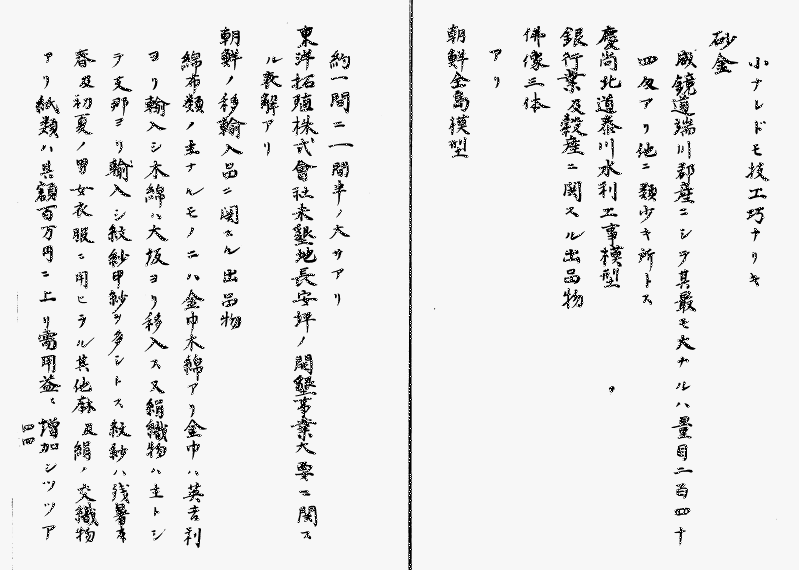 小ナレドモ技工巧ナリキ
砂金
咸鏡道端川郡産ニシテ其最モ大ナルハ量目二百四十
四匁アリ他ニ類少キ所トス
慶尚北道泰川水利工事模型
銀行業及穀産ニ関スル出品物
佛像三体
アリ
朝鮮全島模型
約一間ニ一間半ノ大サアリ
東洋拓殖株式會社未墾地長安坪ノ開墾事業大要ニ関ス
ル表解アリ
朝鮮ノ移輸入品ニ関スル出品物
綿布類ノ主ナルモノニハ金巾木綿アリ金巾ハ英吉利
ヨリ輸入シ木綿ハ大坂ヨリ移入ス又絹織物ハ主トシ
テ支那ヨリ輸入シ紋紗甲紗ヲ多シトス紋紗ハ残暑本
春及初夏ノ男女衣服ニ用ヒラル其他麻及絹ノ交織物
アリ紙類ハ其額百万円ニ上リ需用益々増加シツツア
四四